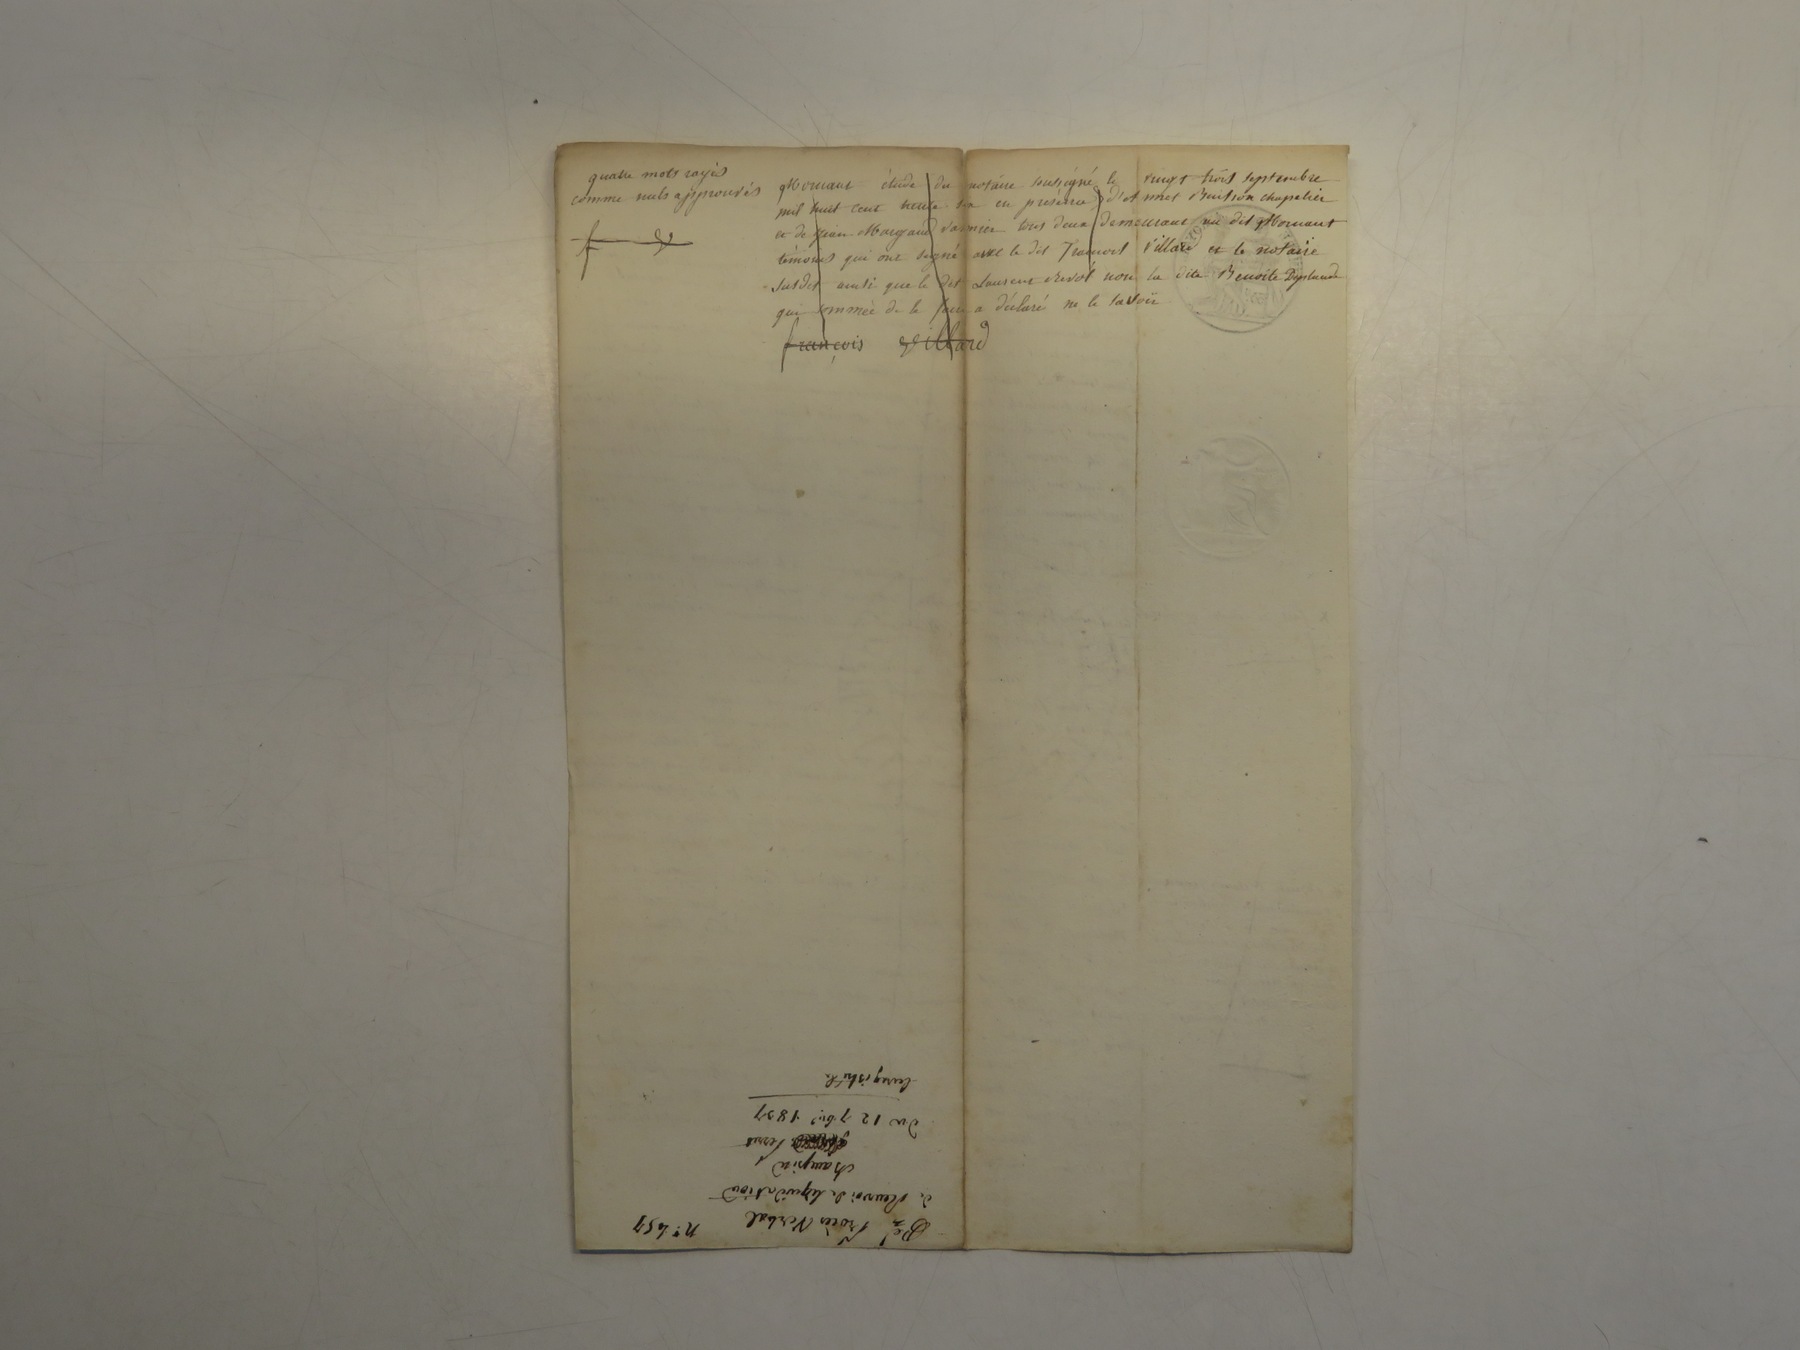 quatre mots rayés
comme nuls approuvés
f V
Mornant étude du notaire soussigné le vingt trois septembre
mil huit cent trente six en presence d' Buisson chapelier
et de jean tous deux demeurant au dit Mornant
témoins qui ont signé avec le dit francois Villard et le notaire
susdit ainsi que le dit Laurent non la dite Benoite
qui sommée de le faire a déclaré ne le savoir
françois Villard
n° 457
Procès Verbal
de renvoi de liquidation
du 12 7bre 1837